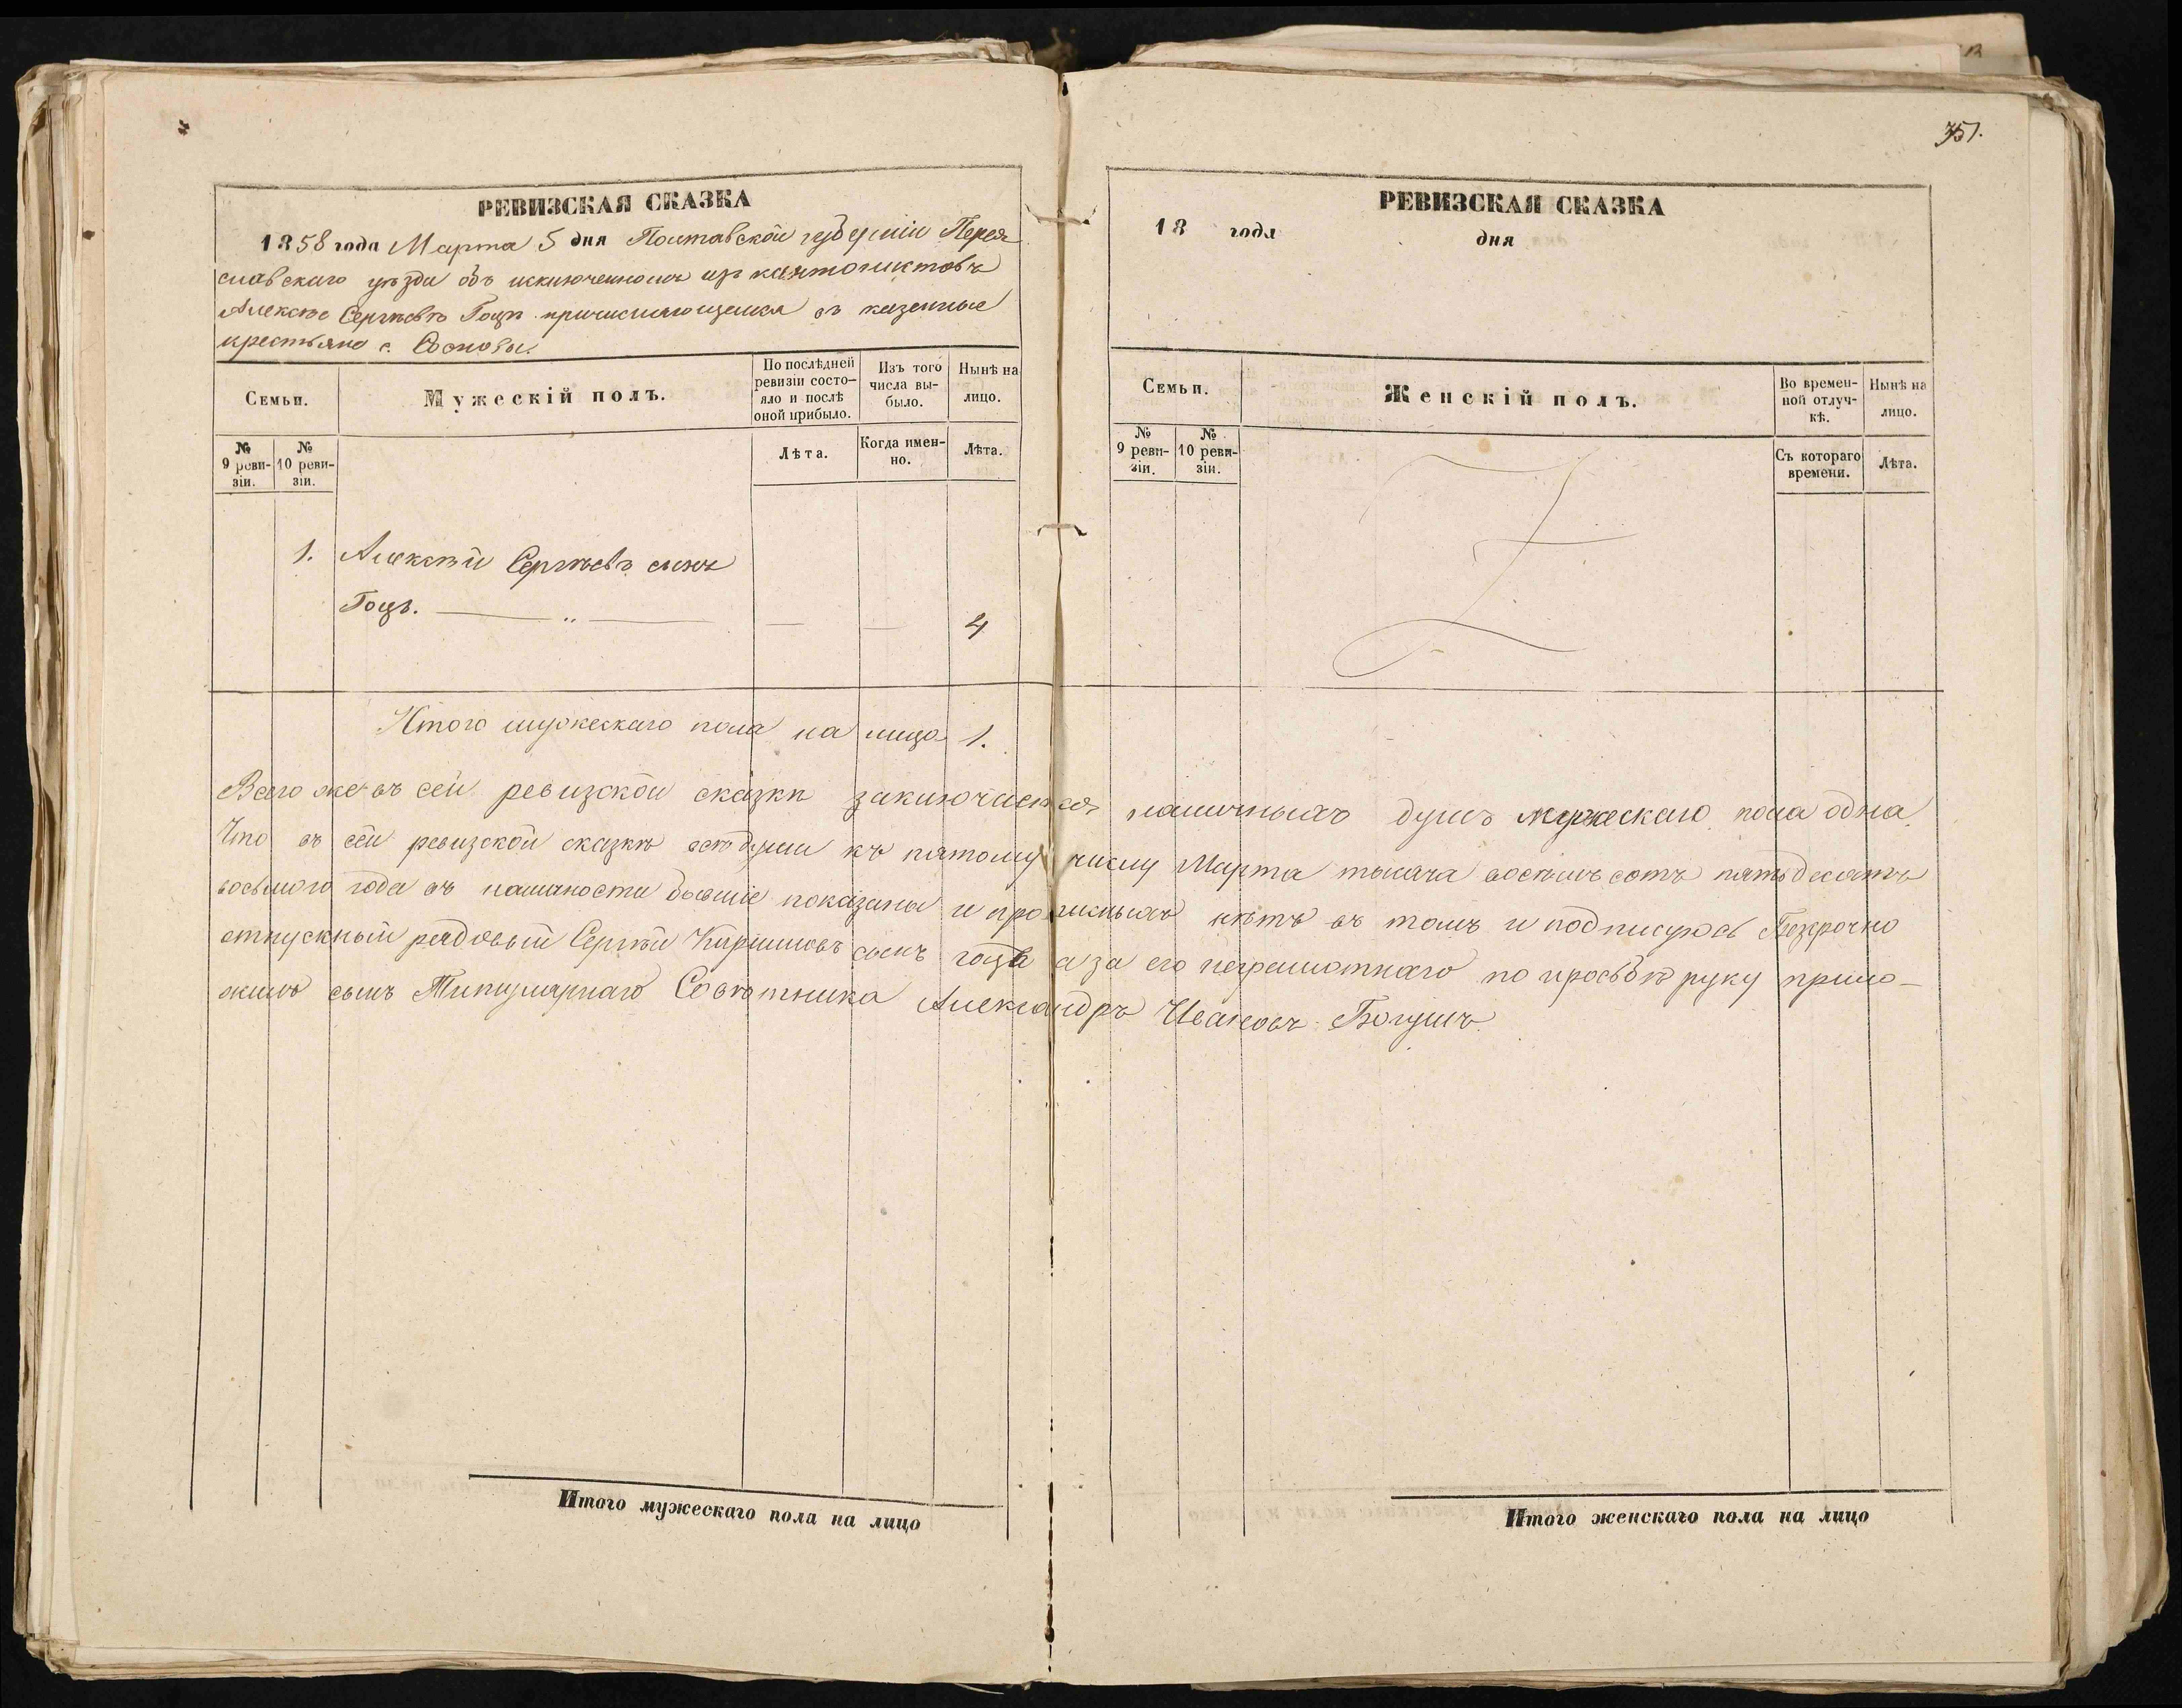 351.
РЕВИЗСКАЯ СКАЗКА
1858 года Марта 5 дня Полтавской губерніи Перея
славскаго уѣзда объ исключенномъ изъ кантонистовъ
Алексѣе Сергѣевѣ Гоцѣ причисляющемся въ казенные
крестьяне с. Сосновы.
Семьи.
Мужескій полъ.
По послѣдней ревизіи состояло и послѣ оной прибыло.
Изъ того числа выбыло.
Нынѣ на лицо.
№ 9 ревизіи.
№ 10 ревизіи.
Лѣта.
Когда именно.
Лѣта.
1. Алексѣй Сергѣевъ сынъ
Гоцъ. — „ — — — 4
Итого мужескаго пола на лицо 1.
РЕВИЗСКАЯ СКАЗКА
18 года дня
Семьи.
Женскій полъ.
Во временной отлучкѣ.
Нынѣ на лицо.
№ 9 ревизіи.
№ 10 ревизіи.
Съ котораго времени.
Лѣта.
Всего же въ сей ревизской сказки заключается наличныхъ душъ мужескаго пола одна.
Что въ сей ревизской сказкѣ всѣ души къ пятому числу Марта тысяча восемь сотъ пятьдесятъ
восьмого года въ наличности бывшіе показаны и прописныхъ нѣтъ въ томъ и подписуюсь Безсрочно
отпускный рядовый Сергѣй Кириловъ сынъ гоцъ а за его неграмотнаго по просьбѣ руку прило-
жилъ сынъ Титулярнаго Совѣтника Александръ Ивановъ Богушъ.
Итого мужескаго пола на лицо
Итого женскаго пола на лицо